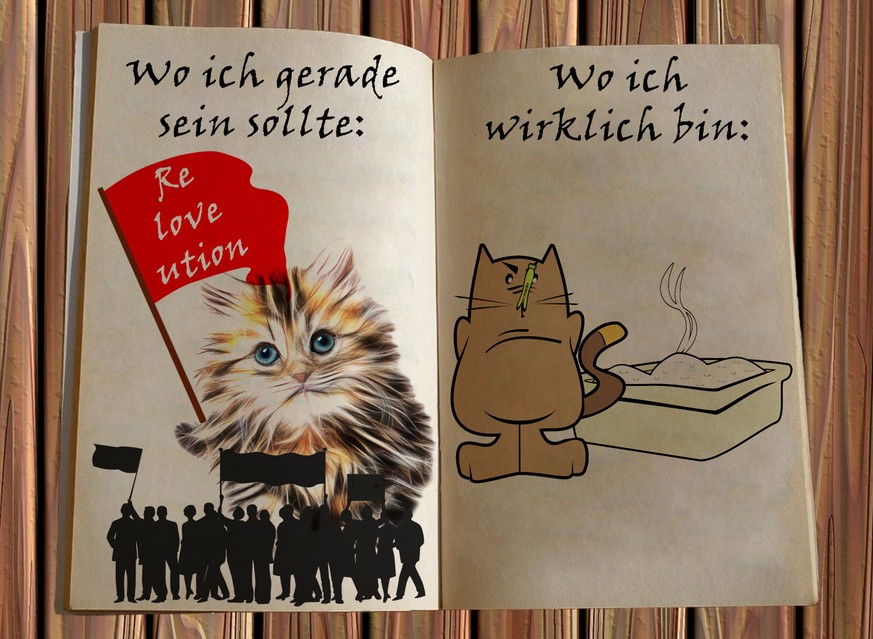 Wo ich gerade
sein sollte:
Re
love
ution
Wo ich
wirklich bin: